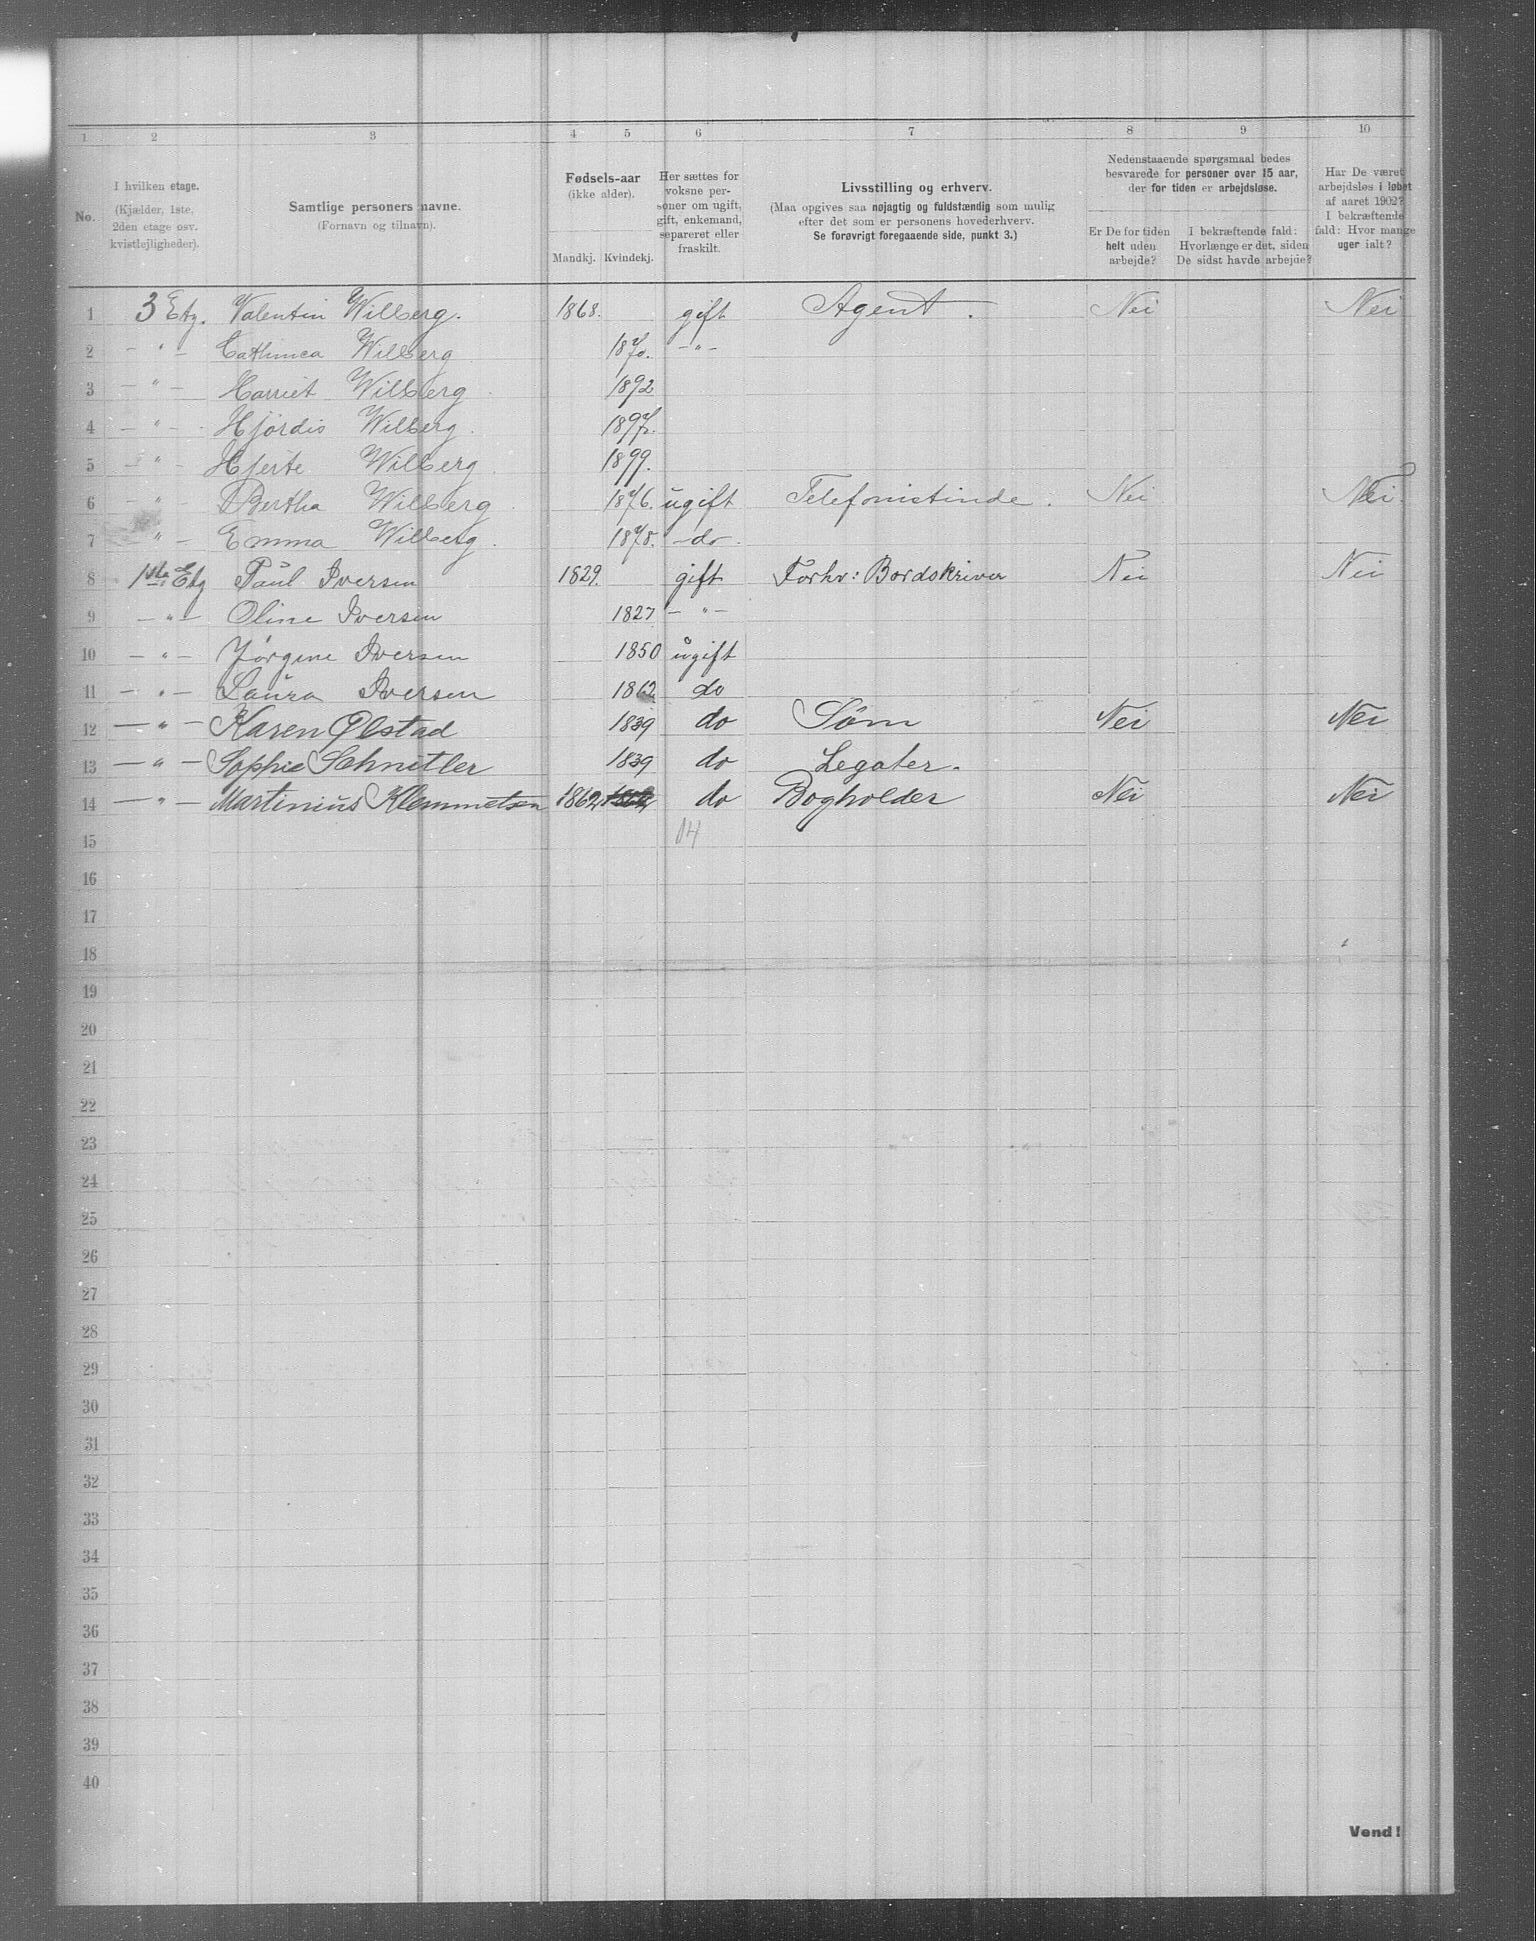 1 2 3 4 5 6 7 8 9 10
No.
I hvilken etage.
(Kjælder, 1ste,
2den etage osv.
kvistlejligheder).
Samtlige personers navne.
(Fornavn og tilnavn).
Fødsels-aar
(ikke alder).
Mandkj. Kvindekj.
Her sættes for
voksne per-
soner om ugift,
gift, enkemand,
separeret eller
fraskilt.
Livsstilling og erhverv.
(Maa opgives saa nøjagtig og fuldstændig som mulig
efter det som er personens hovederhverv.
Se forøvrigt foregaaende side, punkt 3.)
Nedenstaaende spørgsmaal bedes
besvarede for personer over 15 aar,
der for tiden er arbejdsløse.
Er De for tiden
helt uden
arbejde?
I bekræftende fald:
Hvorlænge er det, siden
De sidst havde arbejde?
Har De været
arbejdsløs i løbet
af aaret 1902?
I bekræftende
fald: Hvor mange
uger ialt?
1 3 Etg. Valentin Wilberg. 1868. gift Agent. Nei Nei
2 - " - Cathinca Wilberg 1870. - " -
3 - " - Harriet Wilberg. 1892
4 - " - Hjørdis Wilberg. 1897.
5 - " - Hjerte Wilberg. 1899.
6 - " - Bertha Wilberg. 1876. ugift Telefonistinde. Nei Nei.
7 - " - Emma Wilberg. 1878. - do -
8 1ste Etg Paul Iversen 1829. gift Forhv: Bordskriver Nei Nei
9 - " - Oline Iversen 1827 - " -
10 - " - Jørgine Iversen 1850 ugift
11 - " - Laura Iversen 1862 do
12 - " - Karen Ølstad 1839 do Søm Nei Nei
13 - " - Sophie Schnitler 1839 do Legater.
14 - " - Martinius Klemmetsen 1862 do Bogholder Nei Nei
15 14
16
17
18
19
20
21
22
23
24
25
26
27
28
29
30
31
32
33
34
35
36
37
38
39
40
Vend!